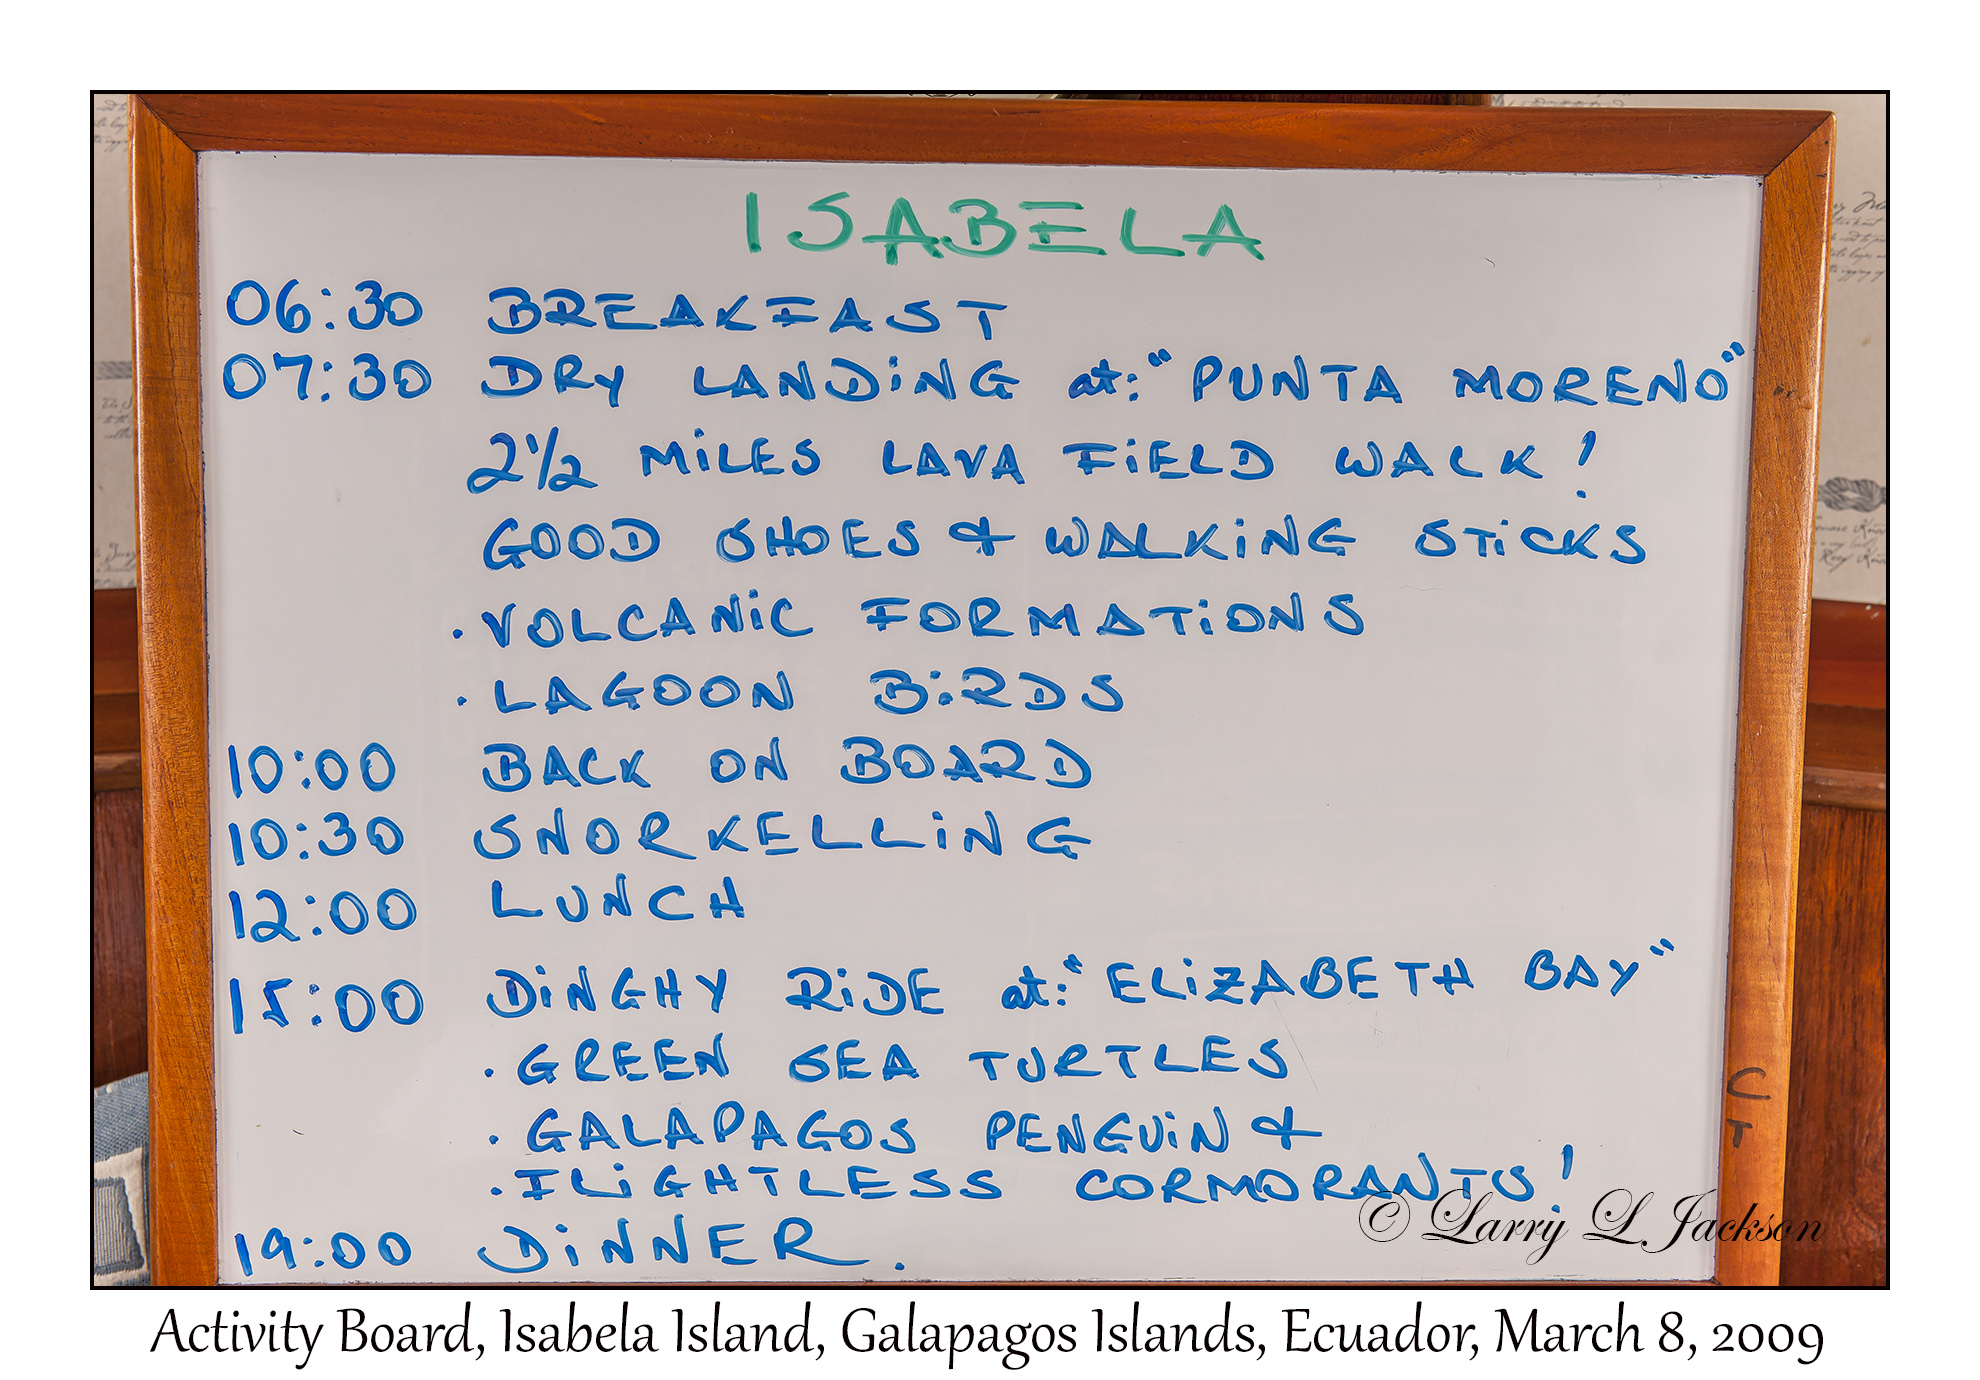 ISABELA
06:30 BREAKFAST
07:30 DRY LANDING at: "PUNTA MORENO"
2½ MILES LAVA FIELD WALK!
GOOD SHOES & WALKING STICKS
· VOLCANIC FORMATIONS
· LAGOON BIRDS
10:00 BACK ON BOARD
10:30 SNORKELLING
12:00 LUNCH
15:00 DINGHY RIDE at: "ELIZABETH BAY"
· GREEN SEA TURTLES
· GALAPAGOS PENGUIN &
· FLIGHTLESS CORMORANTS!
19:00 DINNER.
C
T
© Larry L Jackson
Activity Board, Isabela Island, Galapagos Islands, Ecuador, March 8, 2009